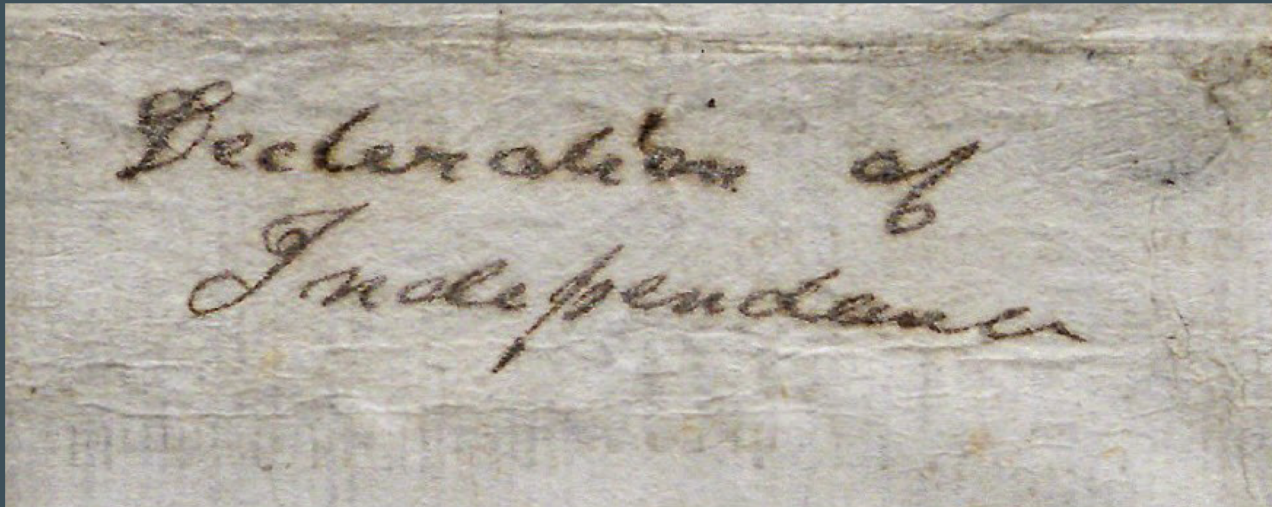 Decleration of
Independance